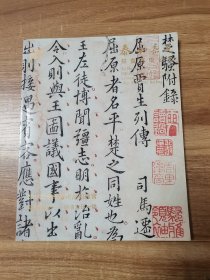 楚騷附錄
屈原賈生列傳
司馬遷
屈原者名平楚之同姓也為
王左徒博聞彊志明於治亂
令入則與王圖議國事以出
出則接遇賓客應對諸